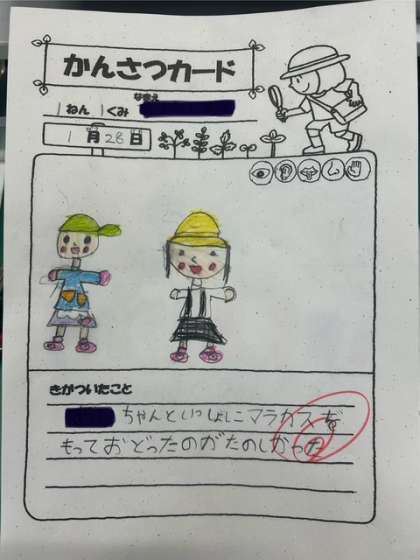 かんさつカード
なまえ
1ねん 1くみ
1月28日
きがついたこと
ちゃんといっしょにマラカスを
もっておどったのがたのしかった